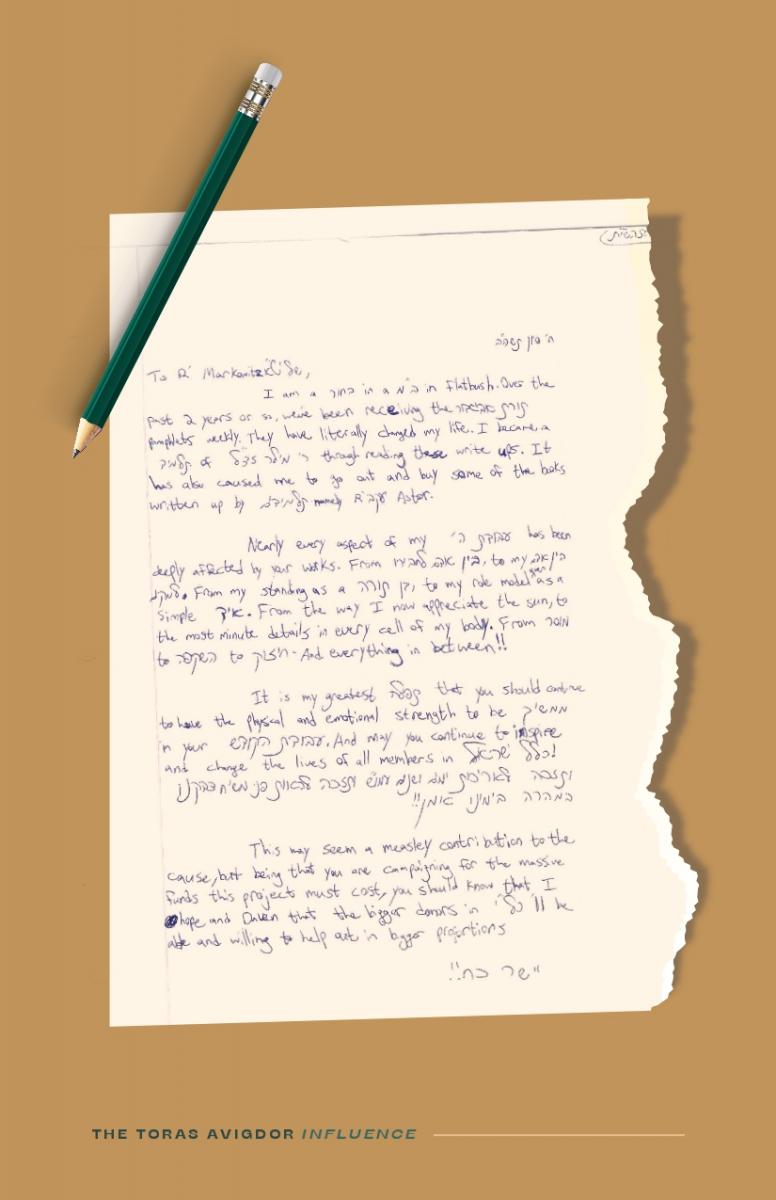 To R' Markowitz שליט"א,
I am a בחור in a ב"מ in Flatbush. Over the
past 2 years or so, we've been receiving the תורת אביגדור
pamphlets weekly. They have literally changed my life. I became a
תלמיד of ר' מילר זצ"ל through reading these write ups. It
has also caused me to go out and buy some of the books
written up by תלמידים namely R' עקיבא Astor.
Nearly every aspect of my עבודת ה' has been
deeply affected by your works. From בין אדם לחבירו, to my בין אדם
למקום. From my standing as a בן תורה, to my role model as a
simple איד. From the way I now appreciate the sun, to
the most minute details in every cell of my body. From מוסר
to השקפה to חיזוק - And everything in between!!
It is my greatest תפלה that you should continue
to have the physical and emotional strength to be ממשיך
in your עבודת הקודש. And may you continue to inspire
and change the lives of all members in כלל ישראל!
ותזכה לאריכות ימים ושנים ותזכה לראות פני משיח צדקנו
במהרה בימינו אמן!!
This may seem a measley contribution to the
cause, but being that you are campaigning for the massive
funds this project must cost, you should know that I
hope and Daven that the bigger donors in כל"י 'll be
able and willing to help out in bigger proportions
יישר כח!!
THE TORAS AVIGDOR INFLUENCE